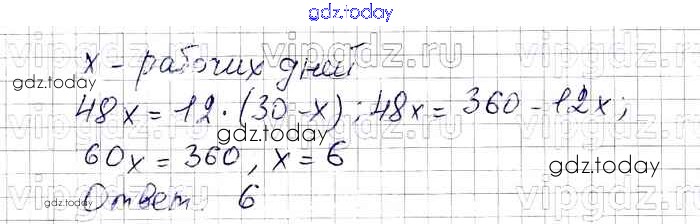 gdz.today
vipgdz.ru vipgdz.ru
x - рабочих дней
gdz.today
48x = 12 · (30 - x) ; 48x = 360 - 12x ;
gdz.today
60x = 360, x = 6
gdz.today
Ответ. 6
gdz.today